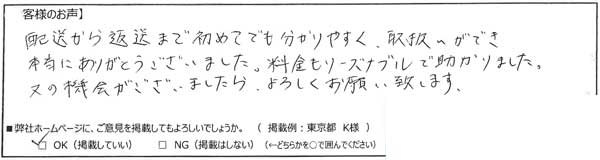 客様のお声】
配送から返送まで初めてでも分かりやすく、取扱いができ
本当にありがとうございました。料金もリーズナブルで助かりました。
又の機会がございましたら、よろしくお願い致します。
■弊社ホームページに、ご意見を掲載してもよろしいでしょうか。（ 掲載例：東京都 K様 ）
□ OK（掲載していい） □ NG（掲載はしない）（←どちらかを○で囲んでください）